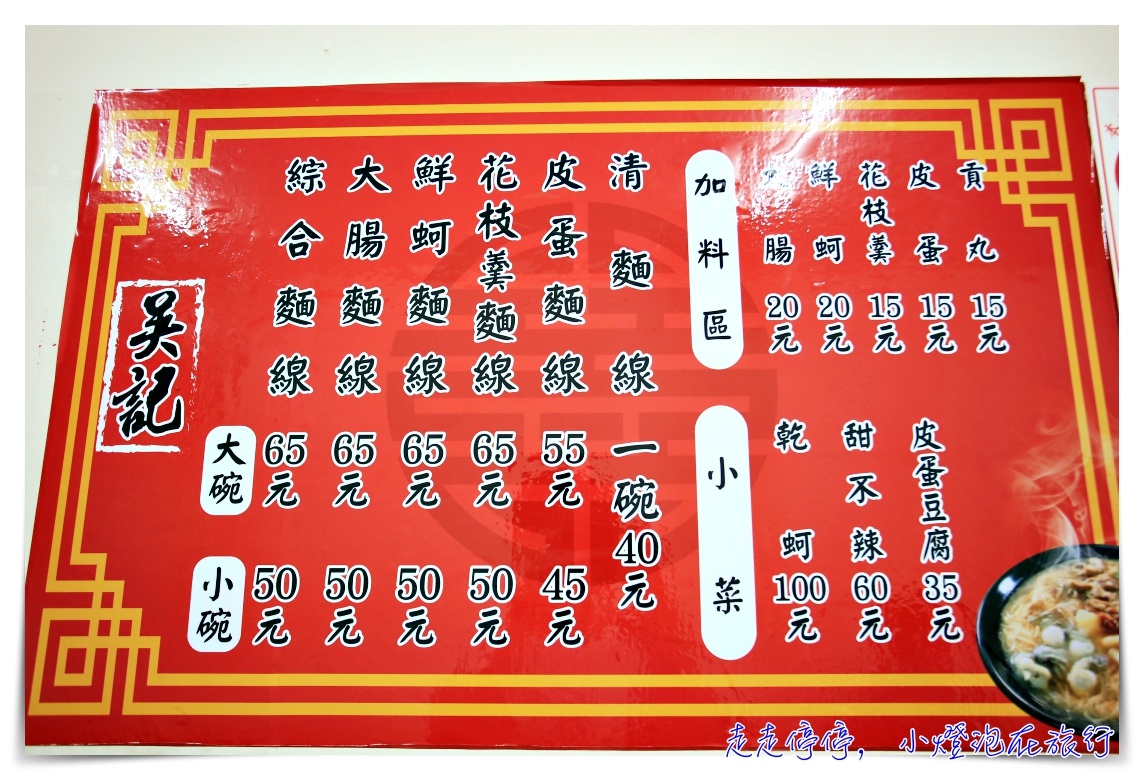 吳記
大碗
小碗
綜合麵線
65元
50元
大腸麵線
65元
50元
鮮蚵麵線
65元
50元
花枝羹麵線
65元
50元
皮蛋麵線
55元
45元
清麵線
一碗40元
加料區
腸
20元
鮮蚵
20元
花枝羹
15元
皮蛋
15元
貢丸
15元
小菜
乾蚵
100元
甜不辣
60元
皮蛋豆腐
35元
走走停停，小燈泡在旅行